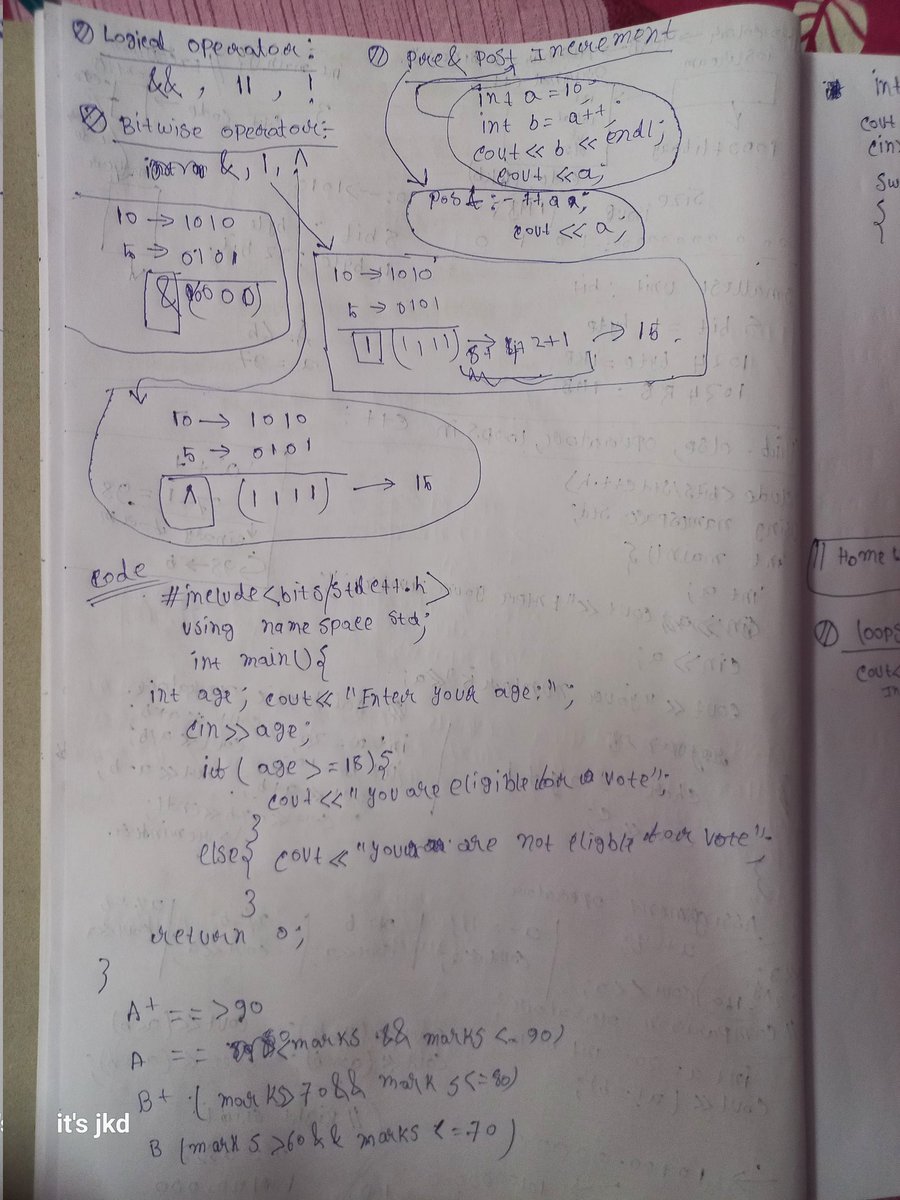 Logical operator:
&& , || , !
Bitwise operator:-
&, |, ^
10 → 1010
5 → 0101
& (0000)
pre & post Increment
int a = 10;
int b = a++;
cout << b << endl;
cout << a;
post :- ++a
cout << a;
10 → 1010
5 → 0101
| (1111) → 8+ 4+ 2+1 → 15.
10 → 1010
5 → 0101
^ (1111) → 15
code
#include<bits/stdc++.h>
using namespace std;
int main(){
int age; cout<< "Enter your age:";
cin>>age;
if( age >=18){
cout<< "you are eligible for a vote";
}
else{ cout<< "you are not eligble for vote";
}
return 0;
}
A+ == >90
A == marks && marks <=90)
B+ ( marks>70&& marks<=80)
B (marks >60&& marks <=70)
int
cout
cin>
sw
{
// Home
loops
cout<
in
it's jkd